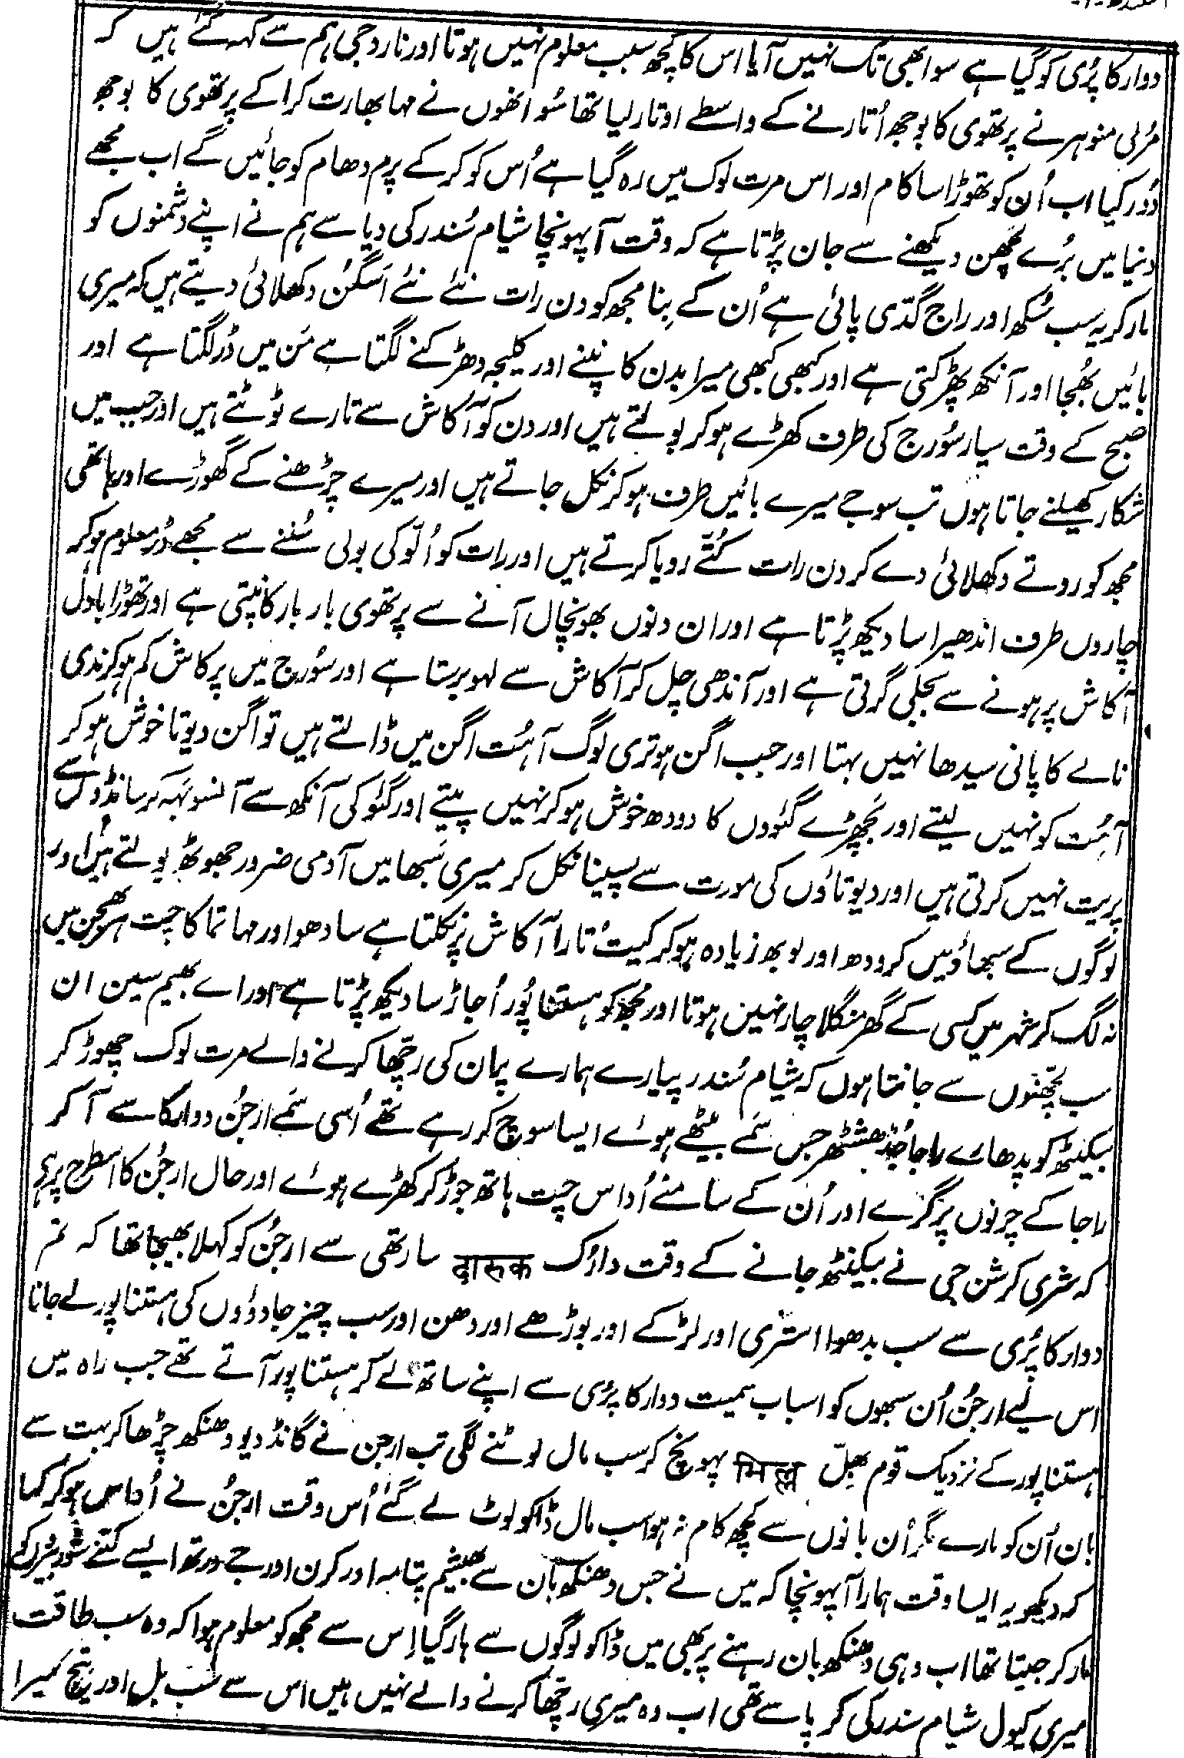 دوارکا پُری کو گیا ہے سو ابھی تک نہیں آیا اس کا کچھ سبب معلوم نہیں ہوتا اور نارد جی ہم سے کہہ گئے ہیں کہ
مُرلی منوہر نے پرتھوی کا بوجھ اُتارنے کے واسطے اوتار لیا تھا سُو انھوں نے مہابھارت کراکے پرتھوی کا بوجھ
دُور کیا اب اُن کو تھوڑا سا کام اور اس مرت لوک میں رہ گیا ہے اُس کو کرکے پرم دھام کو جائیں گے اب مجھے
دنیا میں بُرے لچھن دیکھنے سے جان پڑتا ہے کہ وقت آ پہونچا شیام سُندر کی دیا سے ہم نے اپنے دشمنوں کو
مار کر یہ سب سُکھ اور راج گدّی پائی ہے اُن کے بِنا مجھ کو دن رات نئے نئے اَسگُن دکھلائی دیتے ہیں کہ میری
بائیں بھُجا اور آنکھ پھڑکتی ہے اور کبھی کبھی میرا بدن کانپنے اور کلیجہ دھڑکنے لگتا ہے مَن میں ڈر لگتا ہے اور
صبح کے وقت سیار سُورج کی طرف کھڑے ہوکر بولتے ہیں اور دن کو آکاش سے تارے ٹوٹتے ہیں اور جب میں
شکار کھیلنے جاتا ہوں تب سوجے میرے بائیں طرف ہوکر نکل جاتے ہیں اور میرے چڑھنے کے گھوڑے اور ہاتھی
مجھ کو روتے دکھلائی دے کر دن رات کُتّے رویا کرتے ہیں اور رات کو اُلّو کی بولی سُننے سے مجھے ڈر معلوم ہوکر
چاروں طرف اندھیرا سا دیکھ پڑتا ہے اور ان دنوں بھونچال آنے سے پرتھوی بار بار کانپتی ہے اور تھوڑا بادل
آکاش پر ہونے سے بجلی گرتی ہے اور آندھی چل کر آکاش سے لہو برستا ہے اور سُورج میں پرکاش کم ہوکر ندی
نالے کا پانی سیدھا نہیں بہتا اور جب اگن ہوتری لوگ آہُت اگن میں ڈالتے ہیں تو اگن دیوتا خوش ہوکر
آہُت کو نہیں لیتے اور بَچھڑے گئوؤں کا دودھ خوش ہوکر نہیں پیتے اور گئو کی آنکھ سے آنسو بَہہ کر سانڈوں سے
پریت نہیں کرتی ہیں اور دیوتاؤں کی مورت سے پسینا نکل کر میری سَبھا میں آدمی ضرور جھوٹھ بولتے ہیں اور
لوگوں کے سبھاؤ میں کرودھ اور لوبھ زیادہ ہوکر کیتُ تارا آکاش پر نکلتا ہے سادھو اور مہاتما کا چت ہر بھجن میں
نہ لگ کر شہر میں کسی کے گھر منگلاچار نہیں ہوتا اور مجھ کو ہستنا پُور اُجاڑ سا دیکھ پڑتا ہے اور اے بھیم سین ان
سب لچھنوں سے جانتا ہوں کہ شیام سُندر پیارے ہمارے پران کی رچھا کرنے والے مرت لوک چھوڑ کر
بیکنٹھ کو پدھارے راجا جُدھشٹھر جس سَمے بیٹھے ہوئے ایسا سوچ کر رہے تھے اُسی سَمے ارجُن دوارکا سے آکر
راجا کے چرنوں پر گرے اور اُن کے سامنے اُداس چت ہاتھ جوڑ کر کھڑے ہوئے اور حال ارجُن کا اسطرح پر ہے
کہ شری کرشن جی نے بیکنٹھ جانے کے وقت دارُک दारुक سارتھی سے ارجُن کو کہلا بھیجا تھا کہ تم
دوارکا پُری سے سب بدھوا استری اور لڑکے اور بوڑھے اور دھن اور سب چیز جادوؤں کی ہستنا پور لے جانا
اس لیے ارجُن اُن سبھوں کو اسباب سمیت دوارکا پُری سے اپنے ساتھ لے کر ہستنا پور آتے تھے جب راہ میں
ہستنا پور کے نزدیک قوم بھِلّ भिल्ल پہونچ کر سب مال لوٹنے لگی تب ارجن نے گانڈیو دھنکھ چڑھا کر بہت سے
بان اُن کو مارے مگر اُن بانوں سے کچھ کام نہ ہوا سب مال ڈاکو لوٹ لے گئے اُس وقت ارجُن نے اُداس ہوکر کہا
کہ دیکھو یہ ایسا وقت ہمارا آ پہونچا کہ میں نے جس دھنکھ بان سے بھیشم پتامہ اور کرن اور جے درتھ ایسے کتنے شور بیروں کو
مار کر جیتا تھا اب وہی دھنکھ بان رہنے پر بھی میں ڈاکو لوگوں سے ہار گیا اِس سے مجھ کو معلوم ہوا کہ وہ سب طاقت
میری کیول شیام سندر کی کرپا سے تھی اب وہ میری رچھا کرنے والے نہیں ہیں اس سے سَب بل اور تیج میرا